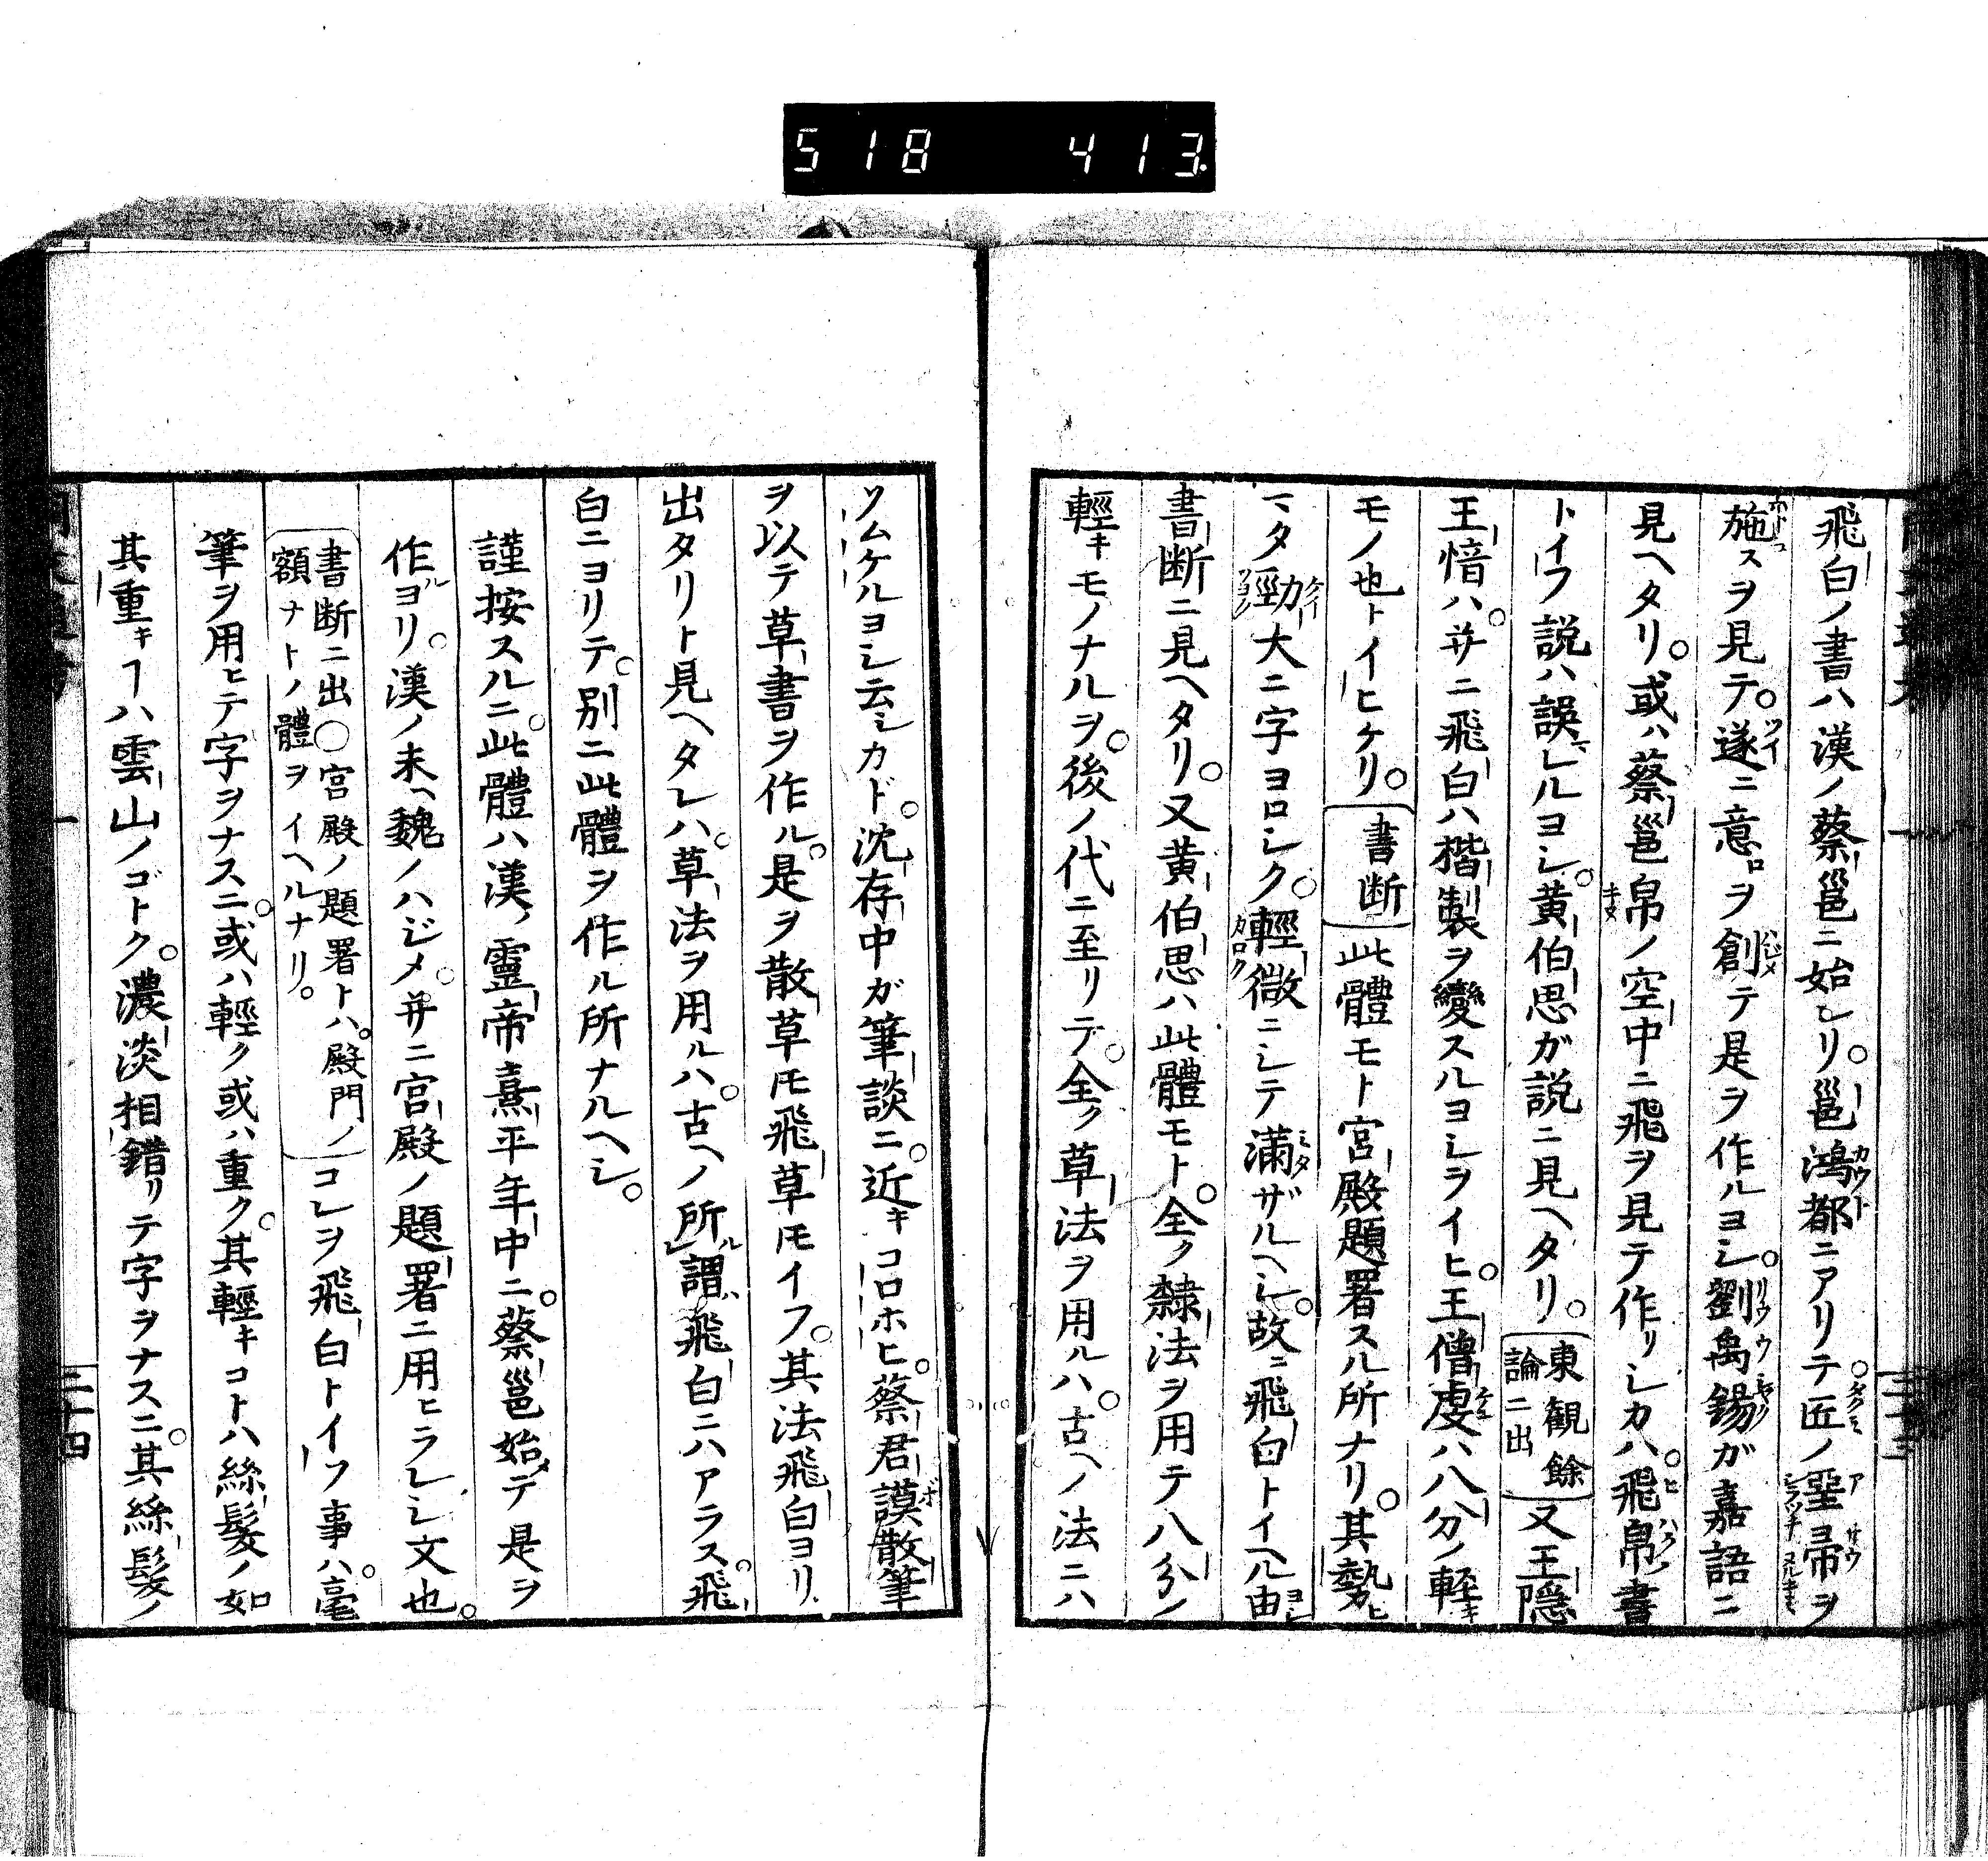 518 413
飛白ノ書ハ漢ノ蔡邕ニ始レリ。邕鴻都ニアリテ。匠ノ堊帚ヲ
施スヲ見テ。遂ニ意ロヲ創テ是ヲ作ルヨシ。劉禹錫ガ嘉語ニ
見ヘタリ。或ハ蔡邕帛ノ空中ニ飛ヲ見テ作リシカハ。飛帛書
トイフ説ハ誤レルヨシ。黄伯思ガ説ニ見ヘタリ。東観餘論ニ出 又王隠
王愔ハ。并ニ飛白ハ楷製ヲ變スルヨシヲイヒ。王僧虔ハ八分ノ軽キ
モノ也トイヒケリ。書断 此體モト宮殿題署スル所ナリ。其勢ヒ
マタ勁大ニ字ヨロシク。輕微ニシテ滿ザルヘシ。故ニ飛白トイヘル由
書断ニ見ヘタリ。又黄伯思ハ此體モト。全ク隷法ヲ用テ八分ノ
輕キモノナルヲ。後ノ代ニ至リテ。全ク草法ヲ用ルハ。古ヘノ法ニハ
ソムケルヨシ云シカド。沈存中ガ筆談ニ。近キコロホヒ。蔡君謨散筆
ヲ以テ草書ヲ作ル。是ヲ散草圧飛草圧イフ。其法飛白ヨリ
出タリト見ヘタレハ。草法ヲ用ルハ。古ヘノ所謂飛白ニハアラス。飛
白ニヨリテ。別ニ此體ヲ作ル所ナルヘシ。
謹按スルニ。此體ハ漢ノ靈帝熹平年中ニ。蔡邕始テ是ヲ
作ヨリ。漢ノ末ヘ魏ノハジメ。并ニ宮殿ノ題署ニ用ヒラレシ文也。
書断ニ出○宮殿ノ題署トハ。殿門ノ額ナトノ體ヲイヘルナリ。コレヲ飛白トイフ事ハ。毫
筆ヲ用ヒテ字ヲナスニ。或ハ輕ク或ハ重ク。其輕キコトハ絲髪ノ如
其重キヿハ雲山ノゴトク。濃淡相錯リテ字ヲナスニ。其絲髪ノ
一
二十四